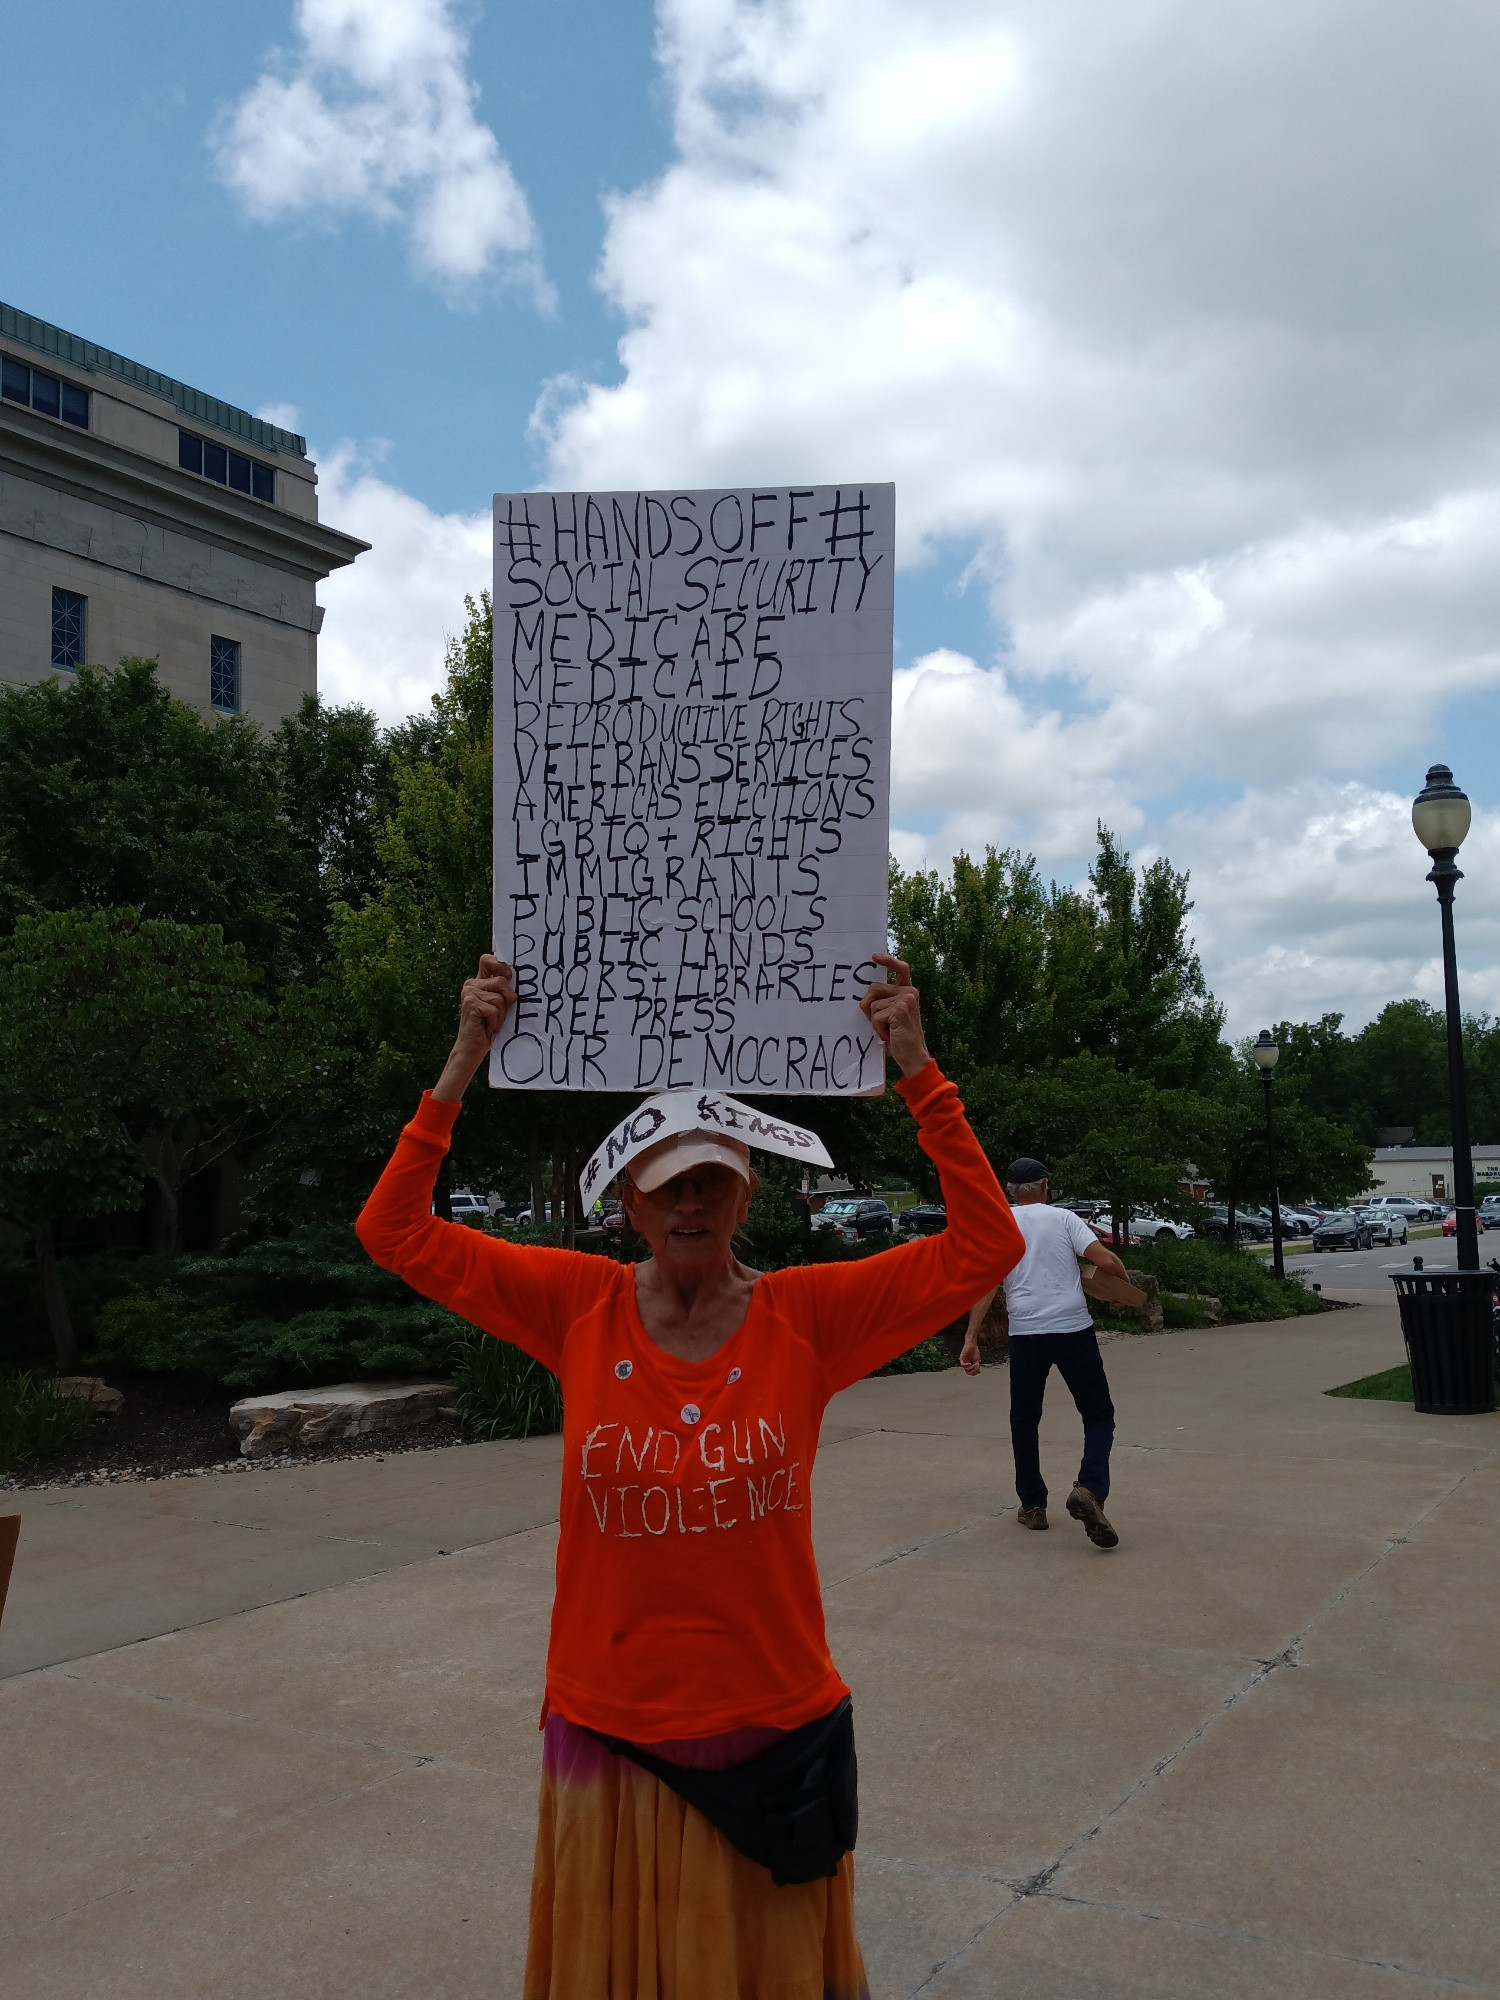 #HANDS OFF#
SOCIAL SECURITY
MEDICARE
MEDICAID
REPRODUCTIVE RIGHTS
VETERANS SERVICES
AMERICAS ELECTIONS
LGBTQ+ RIGHTS
IMMIGRANTS
PUBLIC SCHOOLS
PUBLIC LANDS
BOOKS+LIBRARIES
FREE PRESS
OUR DEMOCRACY
#NO KINGS
END GUN
VIOLENCE
THE